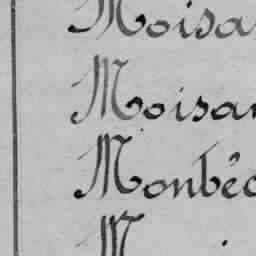 Moisa
Moisan
Monbéc
M